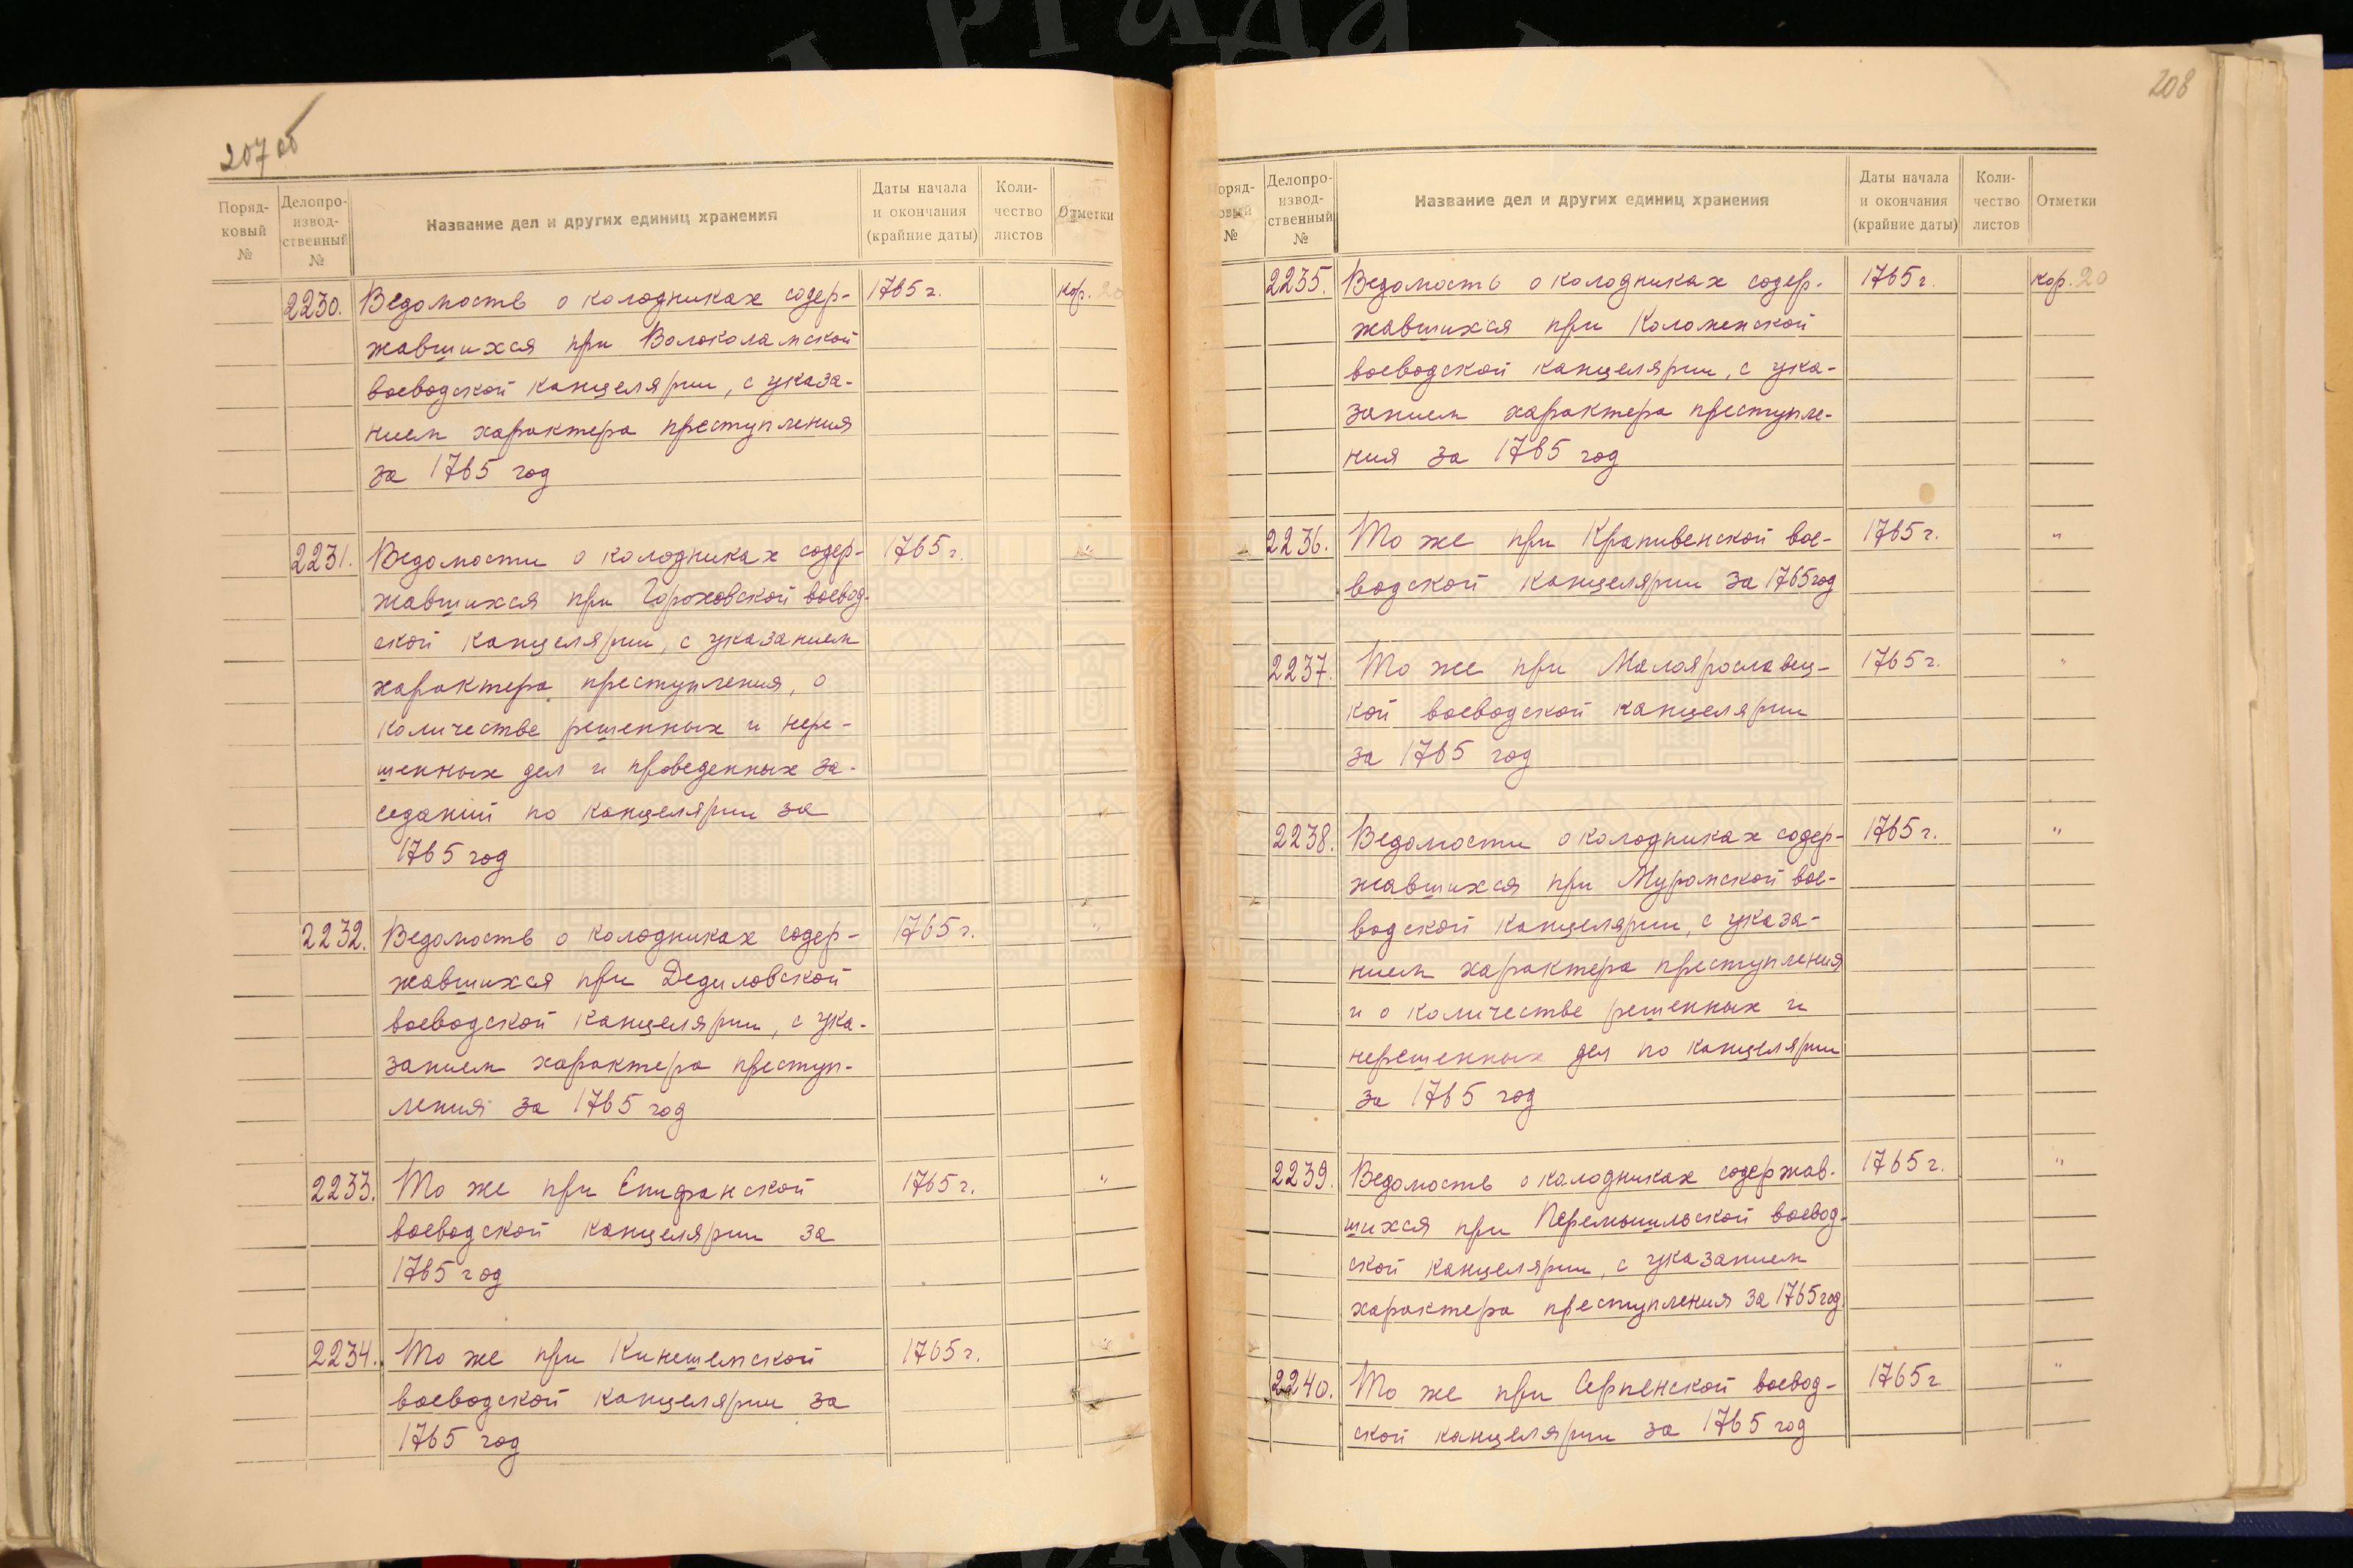 207 об
Поряд-
ковый
№
Делопро-
извод-
ственный
№
Название дел и других единиц хранения
Даты начала
и окончания
(крайние даты)
Коли-
чество
листов
Отметки
2230. Ведомость о колодниках содер- 1765 г. кор. 20
жавшихся при Волоколамской
воеводской канцелярии, с указа-
нием характера преступления
за 1765 год
2231. Ведомости о колодниках содер- 1765 г. "
жавшихся при Гороховской воевод-
ской канцелярии, с указанием
характера преступления, о
количестве решенных и нере-
шенных дел и проведенных за-
седаний по канцелярии за
1765 год
2232. Ведомость о колодниках содер- 1765 г. "
жавшихся при Дедиловской
воеводской канцелярии, с ука-
занием характера преступ-
ления за 1765 год
2233. То же при Епифанской 1765 г. "
воеводской канцелярии за
1765 год
2234. То же при Кинешемской 1765 г. "
воеводской канцелярии за
1765 год
208
Поряд-
ковый
№
Делопро-
извод-
ственный
№
Название дел и других единиц хранения
Даты начала
и окончания
(крайние даты)
Коли-
чество
листов
Отметки
2235. Ведомость о колодниках содер- 1765 г. кор. 20
жавшихся при Коломенской
воеводской канцелярии, с ука-
занием характера преступле-
ния за 1765 год
2236. То же при Крапивенской вое- 1765 г. "
водской канцелярии за 1765 год
2237. То же при Малоярославец- 1765 г. "
кой воеводской канцелярии
за 1765 год
2238. Ведомости о колодниках содер- 1765 г. "
жавшихся при Муромской вое-
водской канцелярии, с указа-
нием характера преступления
и о количестве решенных и
нерешенных дел по канцелярии
за 1765 год
2239. Ведомость о колодниках содержав- 1765 г. "
шихся при Перемышльской воевод-
ской канцелярии, с указанием
характера преступления за 1765 год.
2240. То же при Серпенской воевод- 1765 г "
ской канцелярии за 1765 год